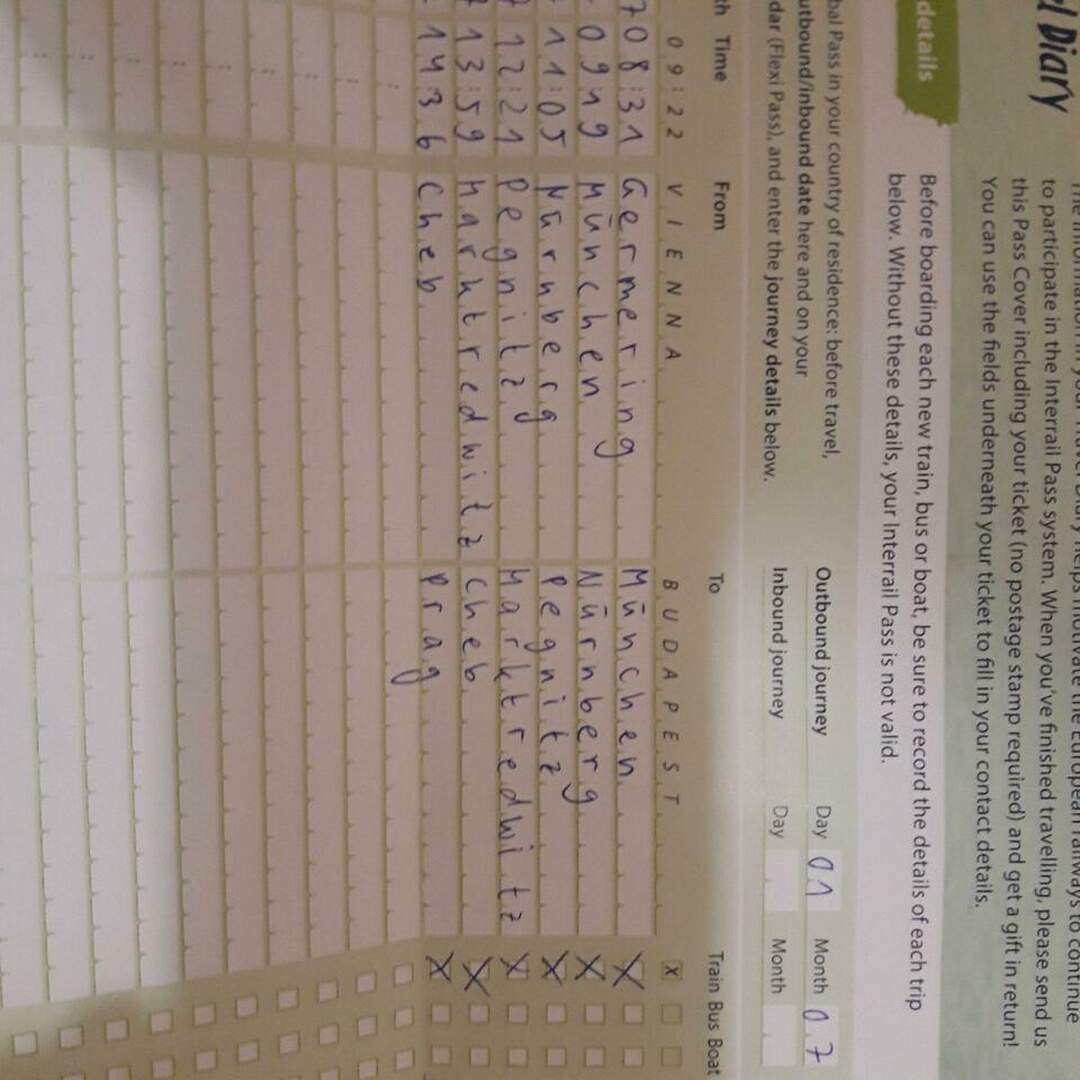 Diary
to participate in the Interrail Pass system. When you've finished travelling, please send us
this Pass Cover including your ticket (no postage stamp required) and get a gift in return!
You can use the fields underneath your ticket to fill in your contact details.
details
Before boarding each new train, bus or boat, be sure to record the details of each trip
below. Without these details, your Interrail Pass is not valid.
Pass in your country of residence: before travel,
outbound/inbound date here and on your
(Flexi Pass), and enter the journey details below.
Outbound journey Day 01 Month 07
Inbound journey Day Month
Time From To Train Bus Boat
09:22 VIENNA BUDAPEST X
7 08:31 Germering München X
09:49 München Nürnberg X
11:05 Nürnberg Pegnitz X
12:21 Pegnitz Marktredwitz X
13:59 Marktredwitz Cheb X
14:36 Cheb Prag X